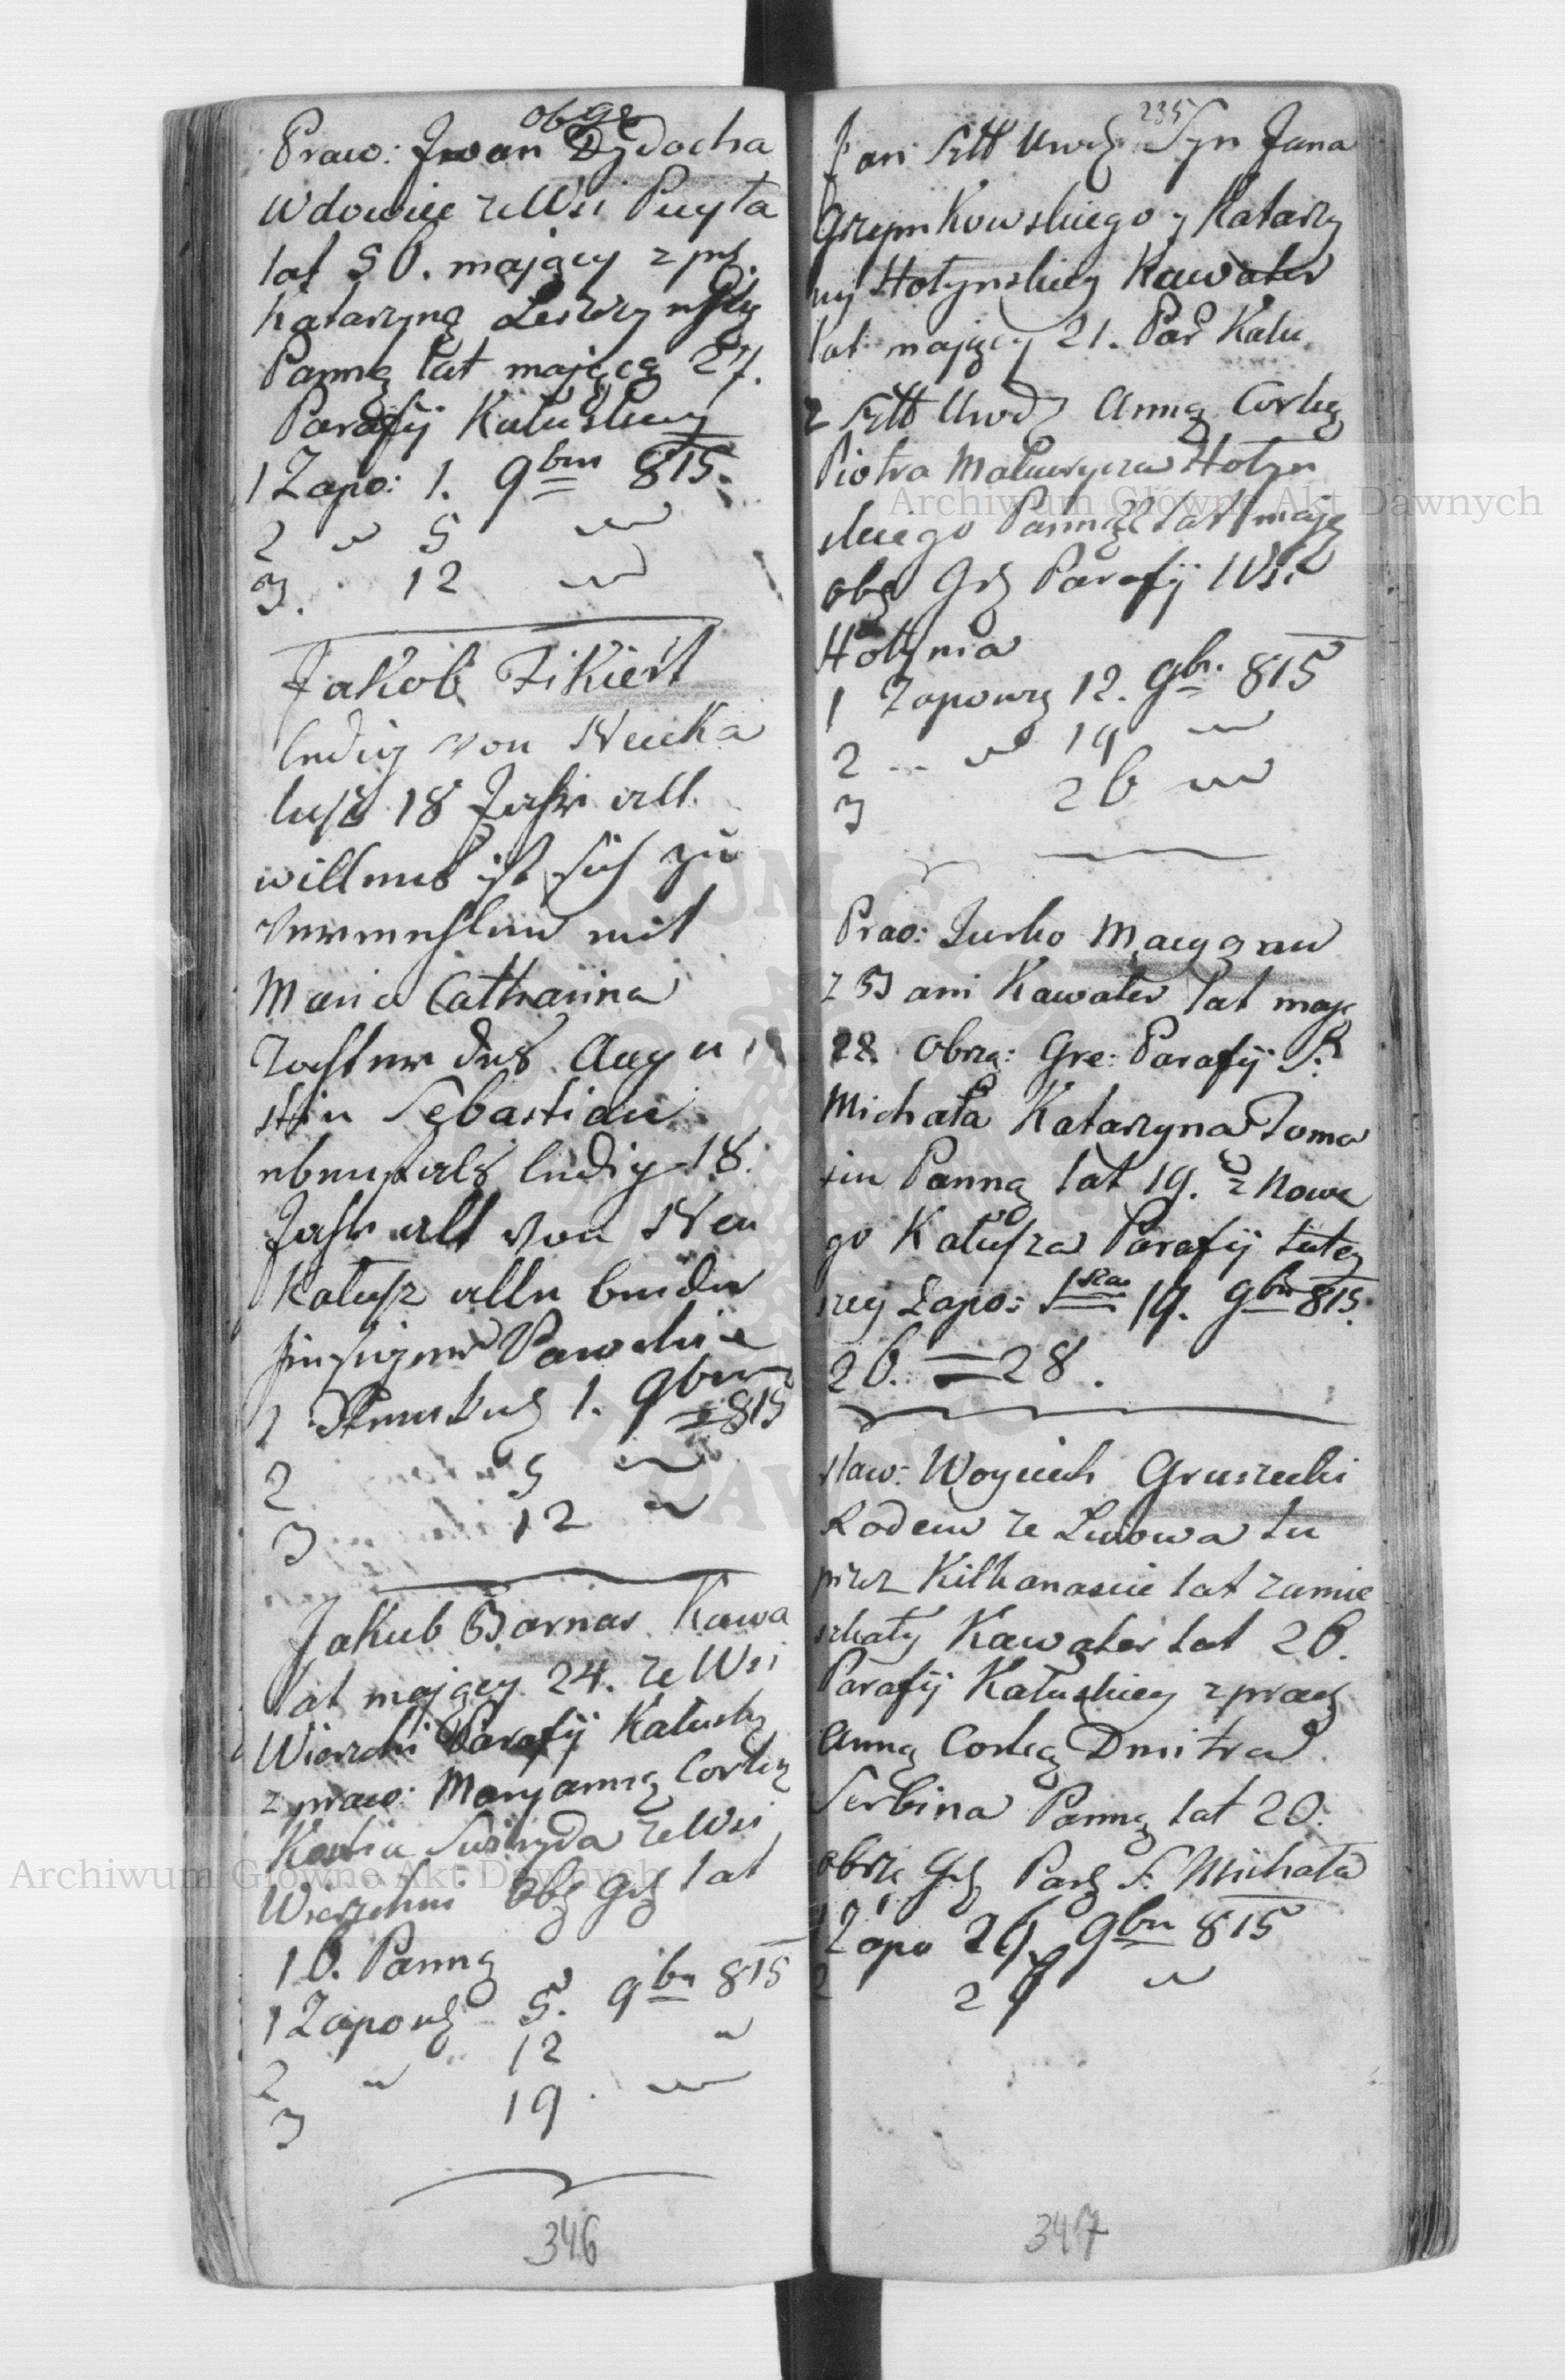 obg
Praw: Jwan Dydocha
Wdowiec ze Wsi Puyła
lat 50. mający z pr
Katarzyną Leszczyńską
Panną lat mającą 27.
Parafij Kałuskiey
1 Zapo: 1. 9bm 815.
2 " 5 "
3. 12 "
Jakob Fikiert
ledig von Neuka
lusz 18 Jahr alt
willens ist sich zu
vermehlen mit
Maria Catharina
Tochter des Augu
stin Sebastian
ebenfals ledig 18.
Jahr alt von Neu
Kalusz alle beide
hiesiger
1 1. 9bm 815
2 5 "
3 12 "
Jakub Barnas Kawa
lat mający 24. ze Wsi
Parafij Kałusky
z praw: Maryanną Corką
ze Wsi
obg Grz lat
Panną
1 Zapowz 5. 9br 815
2 " 12 "
3 19. "
346
235
Jan Sztt Urodz Syn Jana
Grzymkowskiego y Katarzy
ny Hołynskiey Kawaler
lat mający 21. Par Kału.
z Sztt Urodz Anną Corką
Piotra Hołyn
skiego Panną lat mają
obg Grz Parafij Wsi
Hołynia
1 Zapowz 12. 9br. 815
2 ... " 19 "
3 26 "
Prao: Jurko
z Bani Kawaler lat mają
28 obrzą: Gre: Parafij S.
Michała Katarzyna Toma
sin Panną lat 19. z Nowe
go Kałusza Parafij tutey
szey Zapo: 1sza 19. 9br 815.
26. = 28.
Sław: Woyciech Gruszecki
Rodem ze Lwowa tu
przez Kilkanascie lat zamie
szkały Kawaler lat 26.
Parafij Kałuskiey z prac
Anną Corką Dmitra
Serbina Panną lat 20.
obrzą Grz Parz S. Michała
1 Zapo 26. 9br 815
2 "
347
Archiwum Główne Akt Dawnych
Archiwum Główne Akt Dawnych